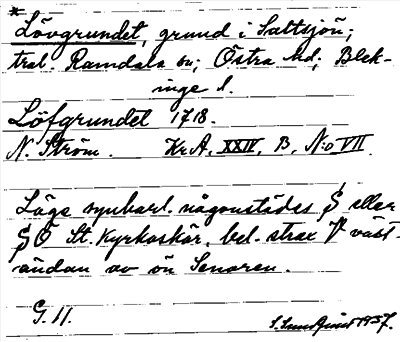 * Lövgrundet, grund i Saltsjön;
tral. Ramdala sn; Östra hd; Blek-
inge l.
Löfgrundet 1718.
N. Ström. Kr.A. XXIV, B, N:o VII.
Läge synbarl. någonstädes S eller
SÖ St. Kyrkoskär, bel. strax V väst-
ändan av ön Senoren.
G. 11.
1937.